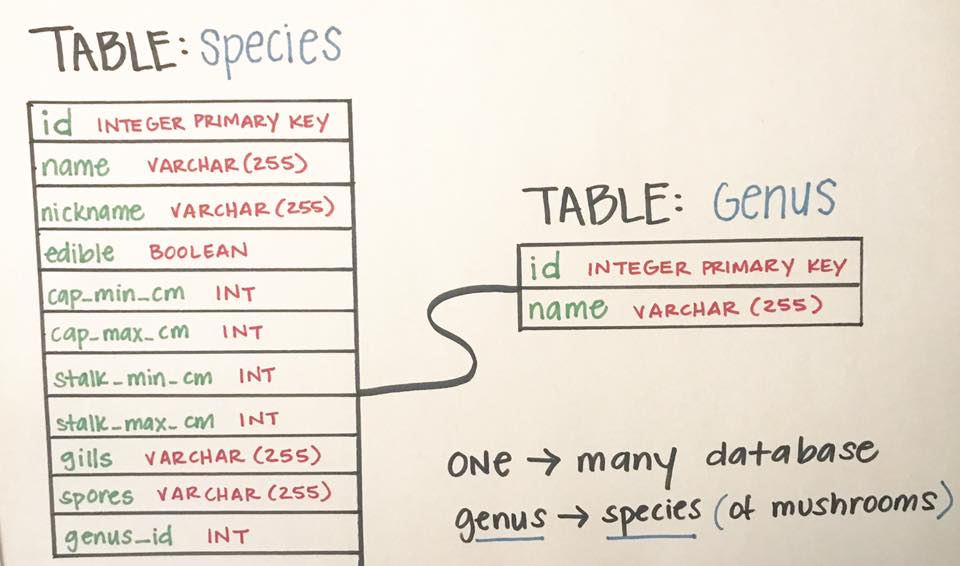 TABLE: Species
id INTEGER PRIMARY KEY
name VARCHAR (255)
nickname VARCHAR (255)
edible BOOLEAN
cap_min_cm INT
cap_max_cm INT
stalk_min_cm INT
stalk_max_cm INT
gills VARCHAR (255)
spores VARCHAR (255)
genus_id INT
TABLE: Genus
id INTEGER PRIMARY KEY
name VARCHAR (255)
ONE → many database
genus → species (of mushrooms)